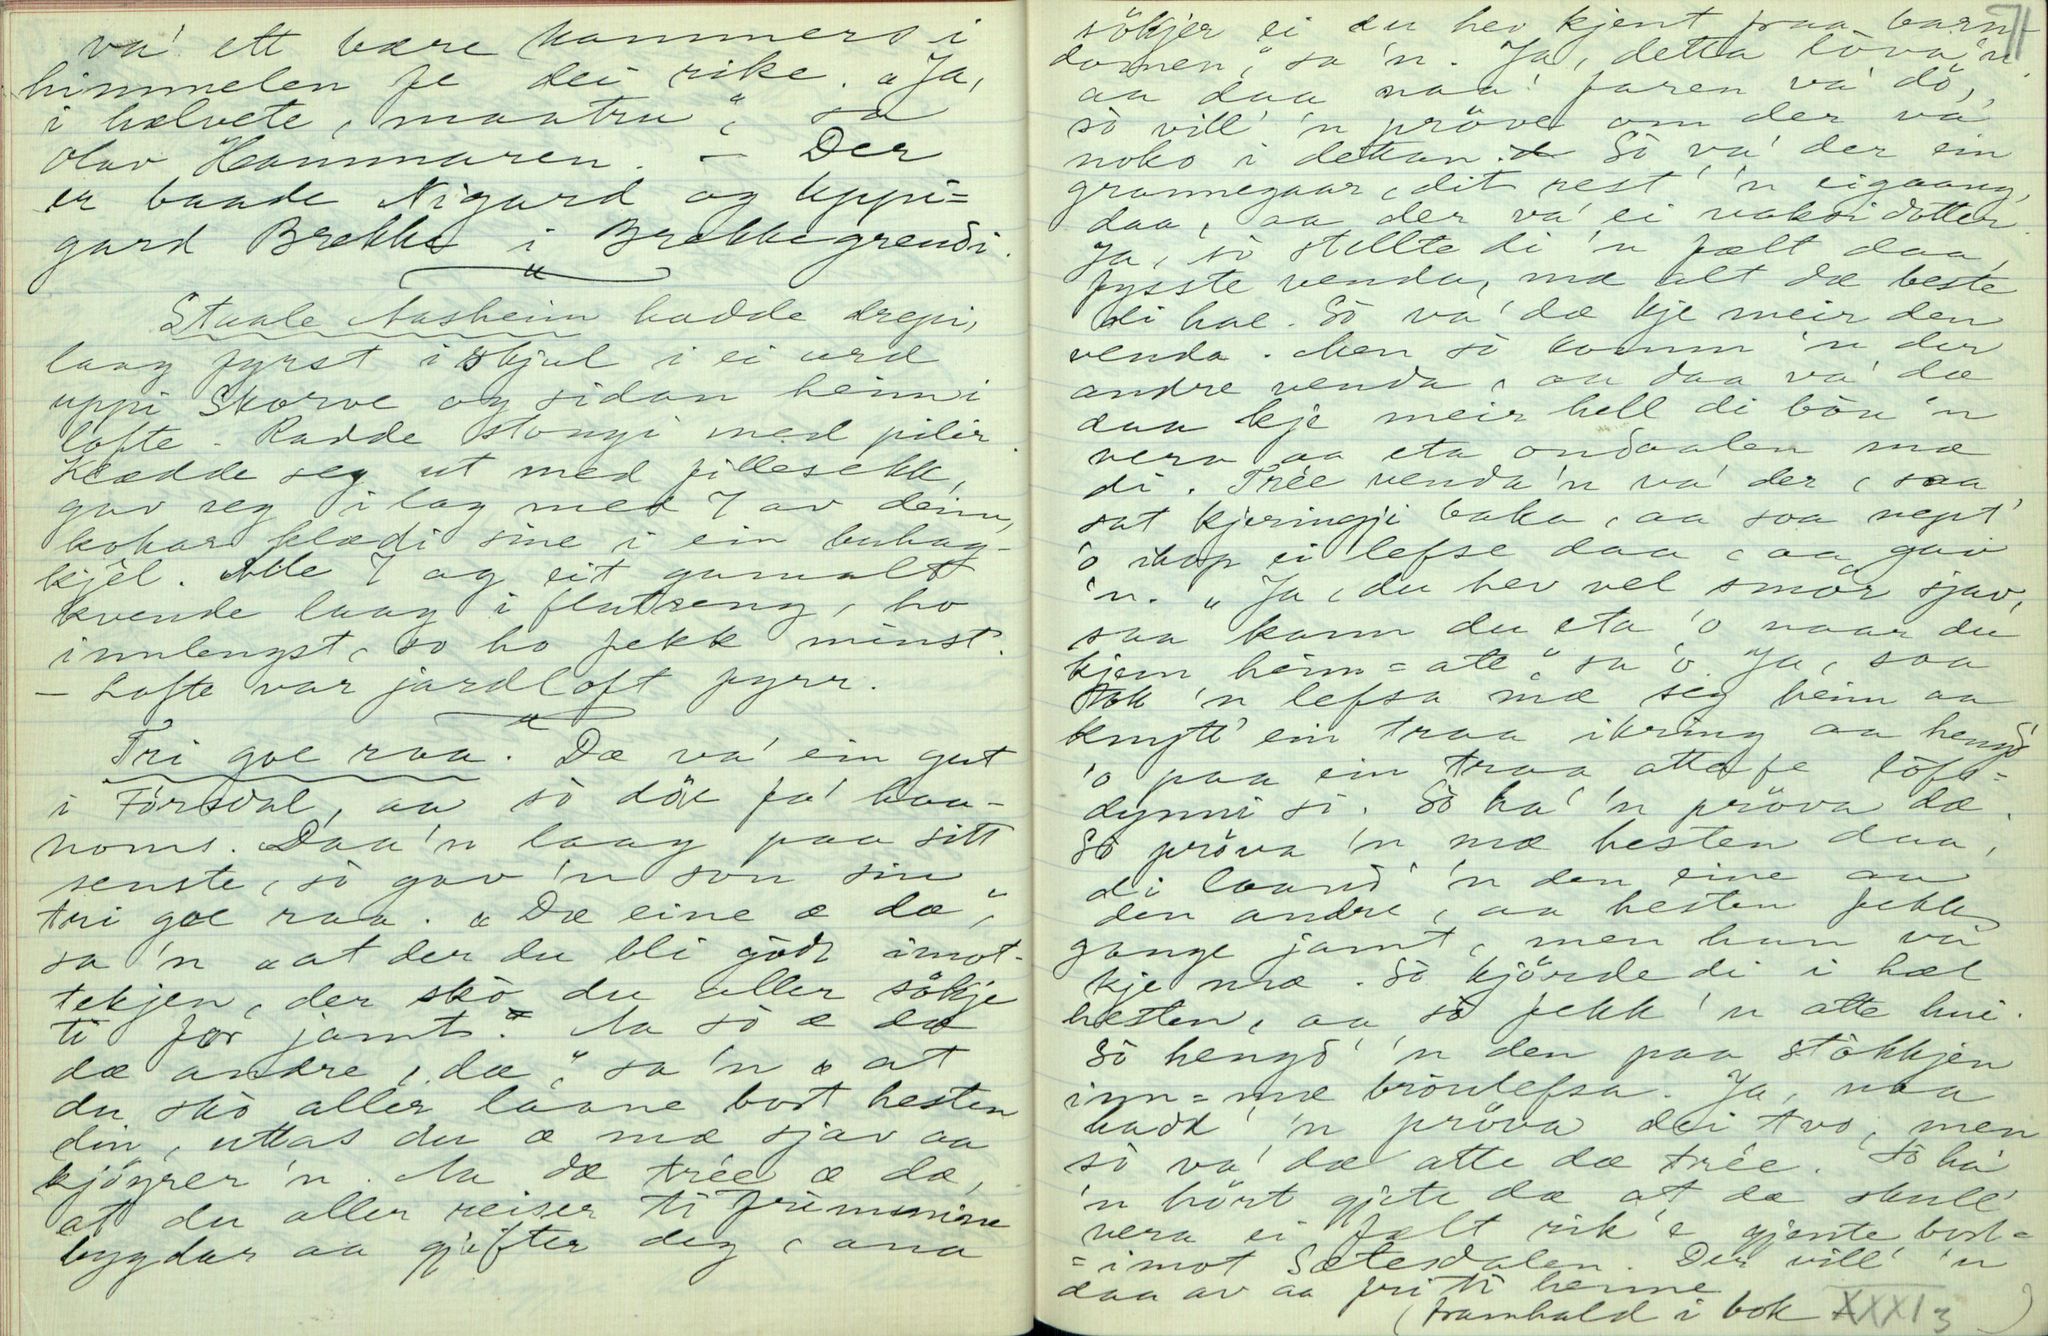 va' ett bære kammers i
himmelen fe dei rike. „Ja,
i helvete, maatru“, sa
Olav Hammaren. – Der
er baade Nigard og Uppi=
gard Brekke i Brekkegrendi.
Staale Aasheim hadde drepi,
laag fyrst i skjul i ei urd
uppi Skorve og sidan heim i
lofte. Radde stongi med pilir.
Klædde seg ut med fillesekk,
gav seg i lag med 7 av deim,
kokar klædi sine i ein
kjel. Alle 7 og eit gamalt
kvende laag i flatseng, ho
innlengst, so ho fekk minst.
– Lofte var jardloft fyrr.
Tri goe raa. Dæ va' ein gut
i Försdal, aa sò döe fa' haa-
noms. Daa 'n laag paa sitt
senste, sò gav 'n son sin
tri goe raa. „Dæ eine æ dæ“,
sa 'n „at der du bli gödt imot-
tekjen, der skò du aller sökje
ti for jamt.“ Aa sò æ dæ
dæ andre, dæ“, sa 'n „at
du skò aller laane bort hesten
din, uttas du æ mæ sjav aa
kjöyrer 'n. Aa dæ trée æ dæ,
at du aller reiser ti frimmine
bygdar aa gjifter deg, ana
71
sökjer ei du hev kjent fraa barn-
domen“, sa 'n. Ja, detta lova 'n.
aa daa naa' faren va' dò,
sò vill' 'n pröve om der va'
noko i dettan. Sò va' der ein
grannegaar, dit rest' 'n eigaang,
daa, aa der va' ei vaksi dotter.
Ja, sò stellte di 'n fælt daa,
fysste venda, mæ alt dæ beste
di hae. Sò va' dæ kje meir den
venda. Men sò komm 'n der
andre venda, aa daa va' dæ
daa kje meir hell di bòu 'n
vera aa eta ondaalen mæ
di. Trée venda 'n va' der, saa
sat kjeringji baka, aa soa vept'
'o ihop ei lefse daa, aa gav
'n. „Ja, du hev vel smör sjav,
saa kann du eta 'o naar du
kjem heim=atte“ sa 'o. Ja, soa
tok 'n lefsa mæ seg heim aa
knytt' ein traa ikring aa hengd'
'o paa ein traa attafe löft-
dynni si. Sò ha' 'n pröva dæ.
Sò pröva 'n mæ hesten daa,
di laand' 'n den eine aa
den andre, aa hesten fekk
gange jamt, men han va'
kje mæ. Sò kjörde di i hæl
hesten, aa sò fekk 'n atte hui.
Sò hengd' 'n den paa stökkjen
inn=mæ bröulefsa. Ja, naa
hadd' 'n pröva dei tvo, men
sò va' dæ atte dæ trée. Sò ha'
'n hört gjete dæ at dæ skull'
vera ei fælt rik'e gjente bort=
=imot Sætesdalen. Der vill' 'n
daa av aa fri ti henne
(framhald i bok XXXI 3)